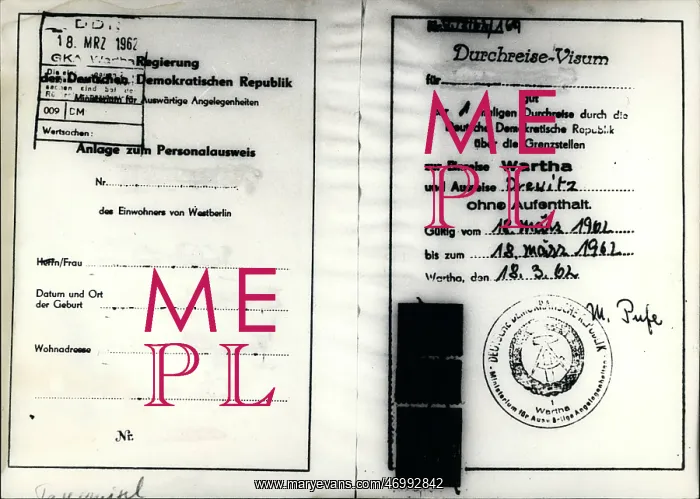 DDR
18. MRZ 1962
GKA Wartha
009 DM
Wertsachen:
Regierung
der Deutschen Demokratischen Republik
Ministerium für Auswärtige Angelegenheiten
Anlage zum Personalausweis
Nr.
des Einwohners von Westberlin
Herrn/Frau
Datum und Ort
der Geburt
Wohnadresse
Nr.
Durchreise-Visum
für
gut
zur 1 maligen Durchreise durch die
Deutsche Demokratische Republik
über die Grenzstellen
zur Einreise Wartha
und Ausreise Drewitz
ohne Aufenthalt.
Gültig vom 18. märz 1962
bis zum 18. märz 1962
Wartha, den 18.3.62
M. Pufe
DEUTSCHE DEMOKRATISCHE REPUBLIK
1
Wartha
Ministerium für Auswärtige Angelegenheiten
ME
PL
ME
PL
www.maryevans.com/46992842